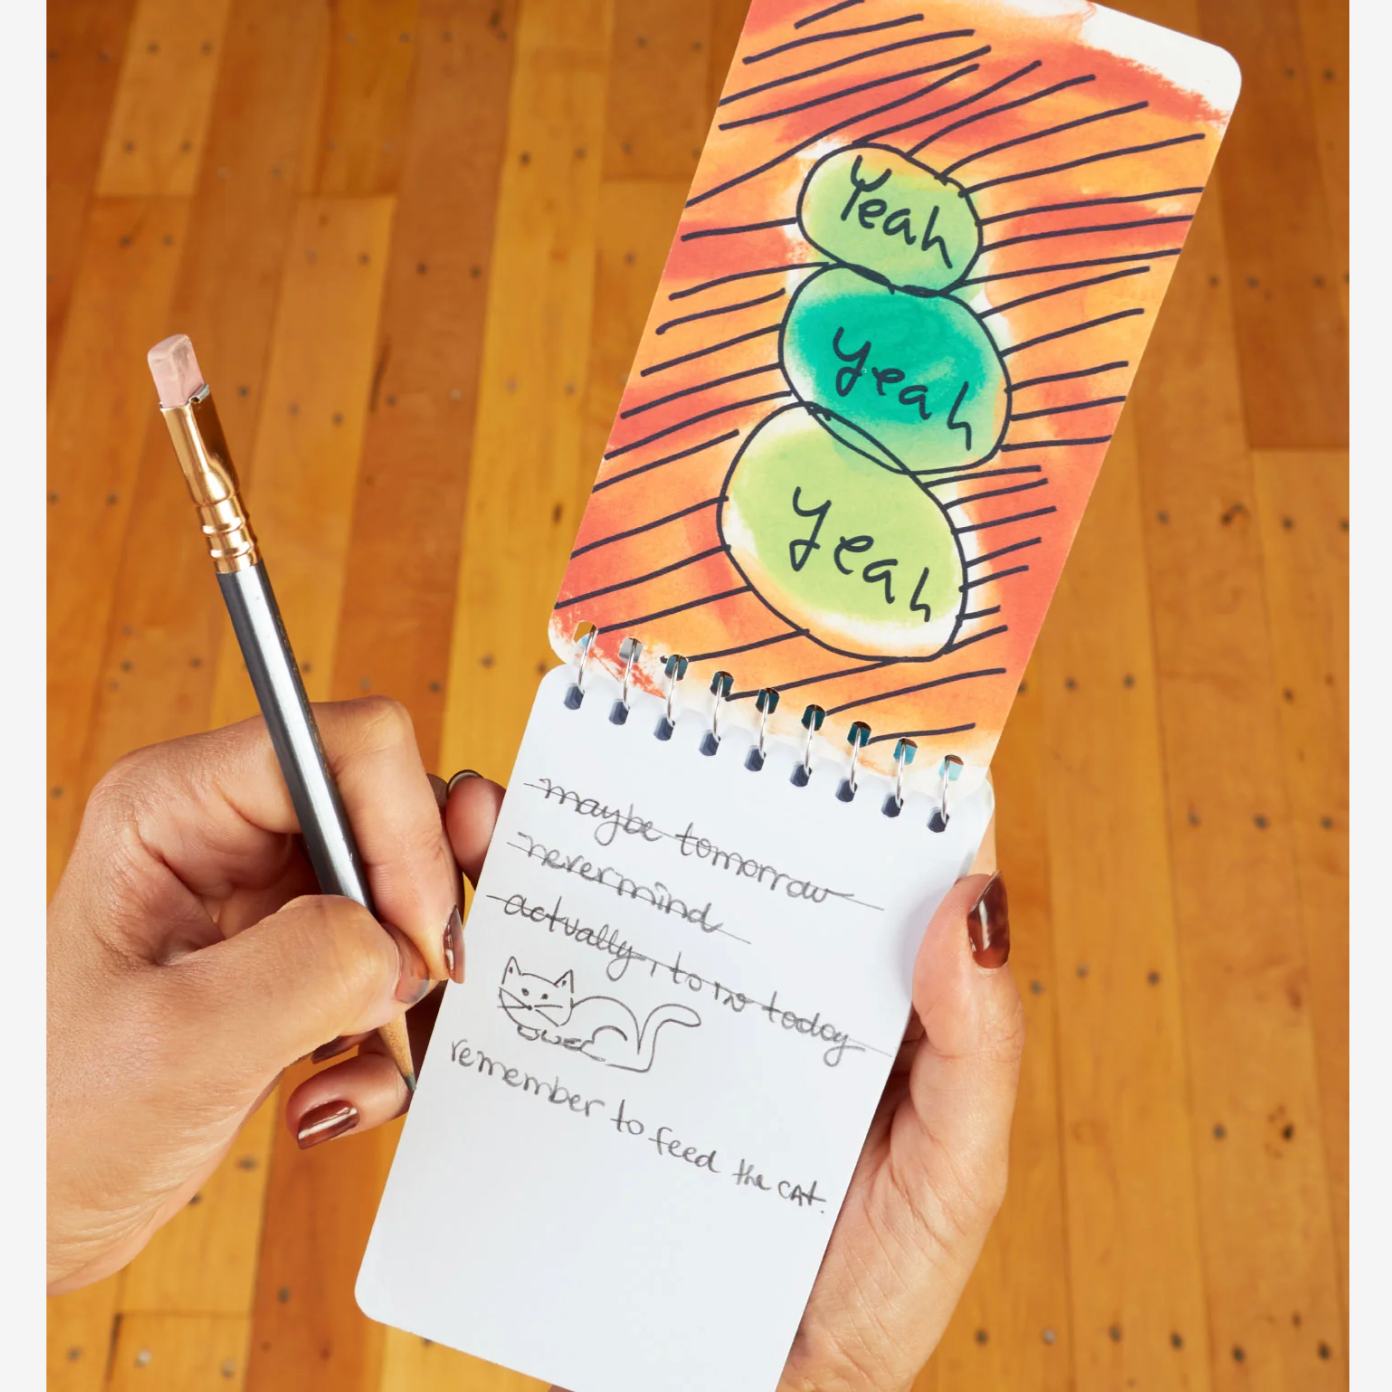 Yeah
yeah
yeah
maybe tomorrow
nevermind
actually, today
remember to feed the CAt.